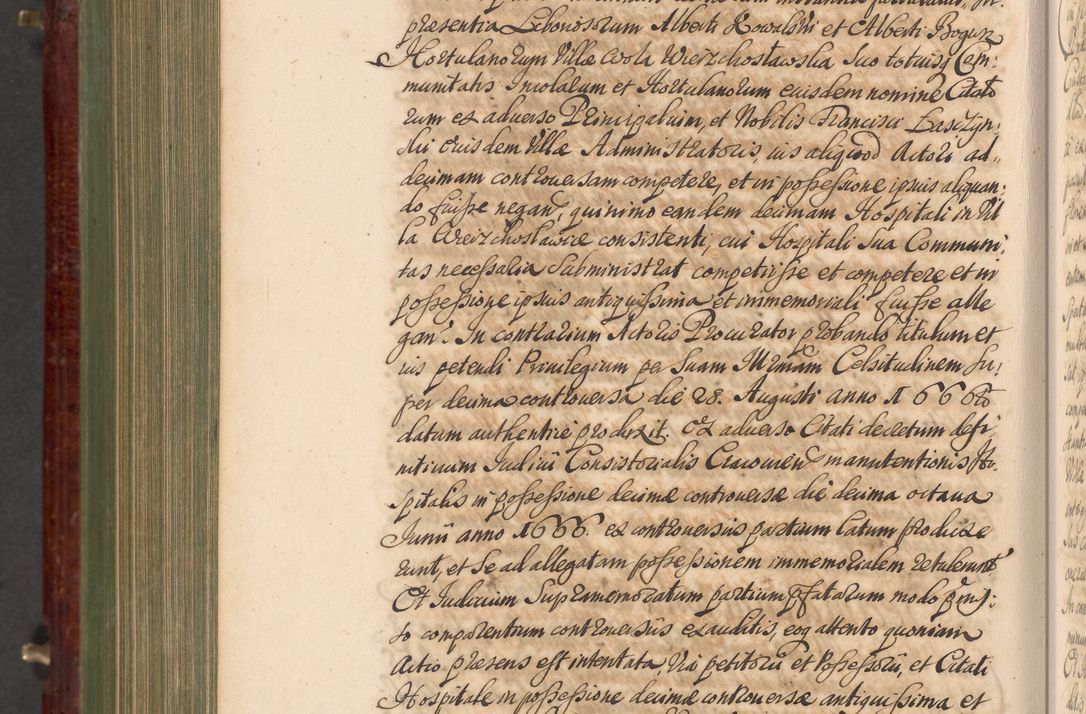 præsentia Lebonosorum Alberti Kowalski et Alberti Bogusz
Hortulanorum Villæ Wola Wierzchosławska suo totiusq Com:
munitatis Incolarum et Hortulanorum eiusdem nomine Citato
rum ex adverso Principalium, et Nobilis Francisci Laszczyn:
skii eiusdem Villæ Administratoris, ius aliquod Actori ad
decimam controversam competere, et in possessione ipsius aliquan:
do fuisse negan, quinimo eandem decimam Hospitali in Vil
la Wierzchosławice consistenti, cui Hospitali sua Communi:
tas necessaria subministrat competivisse et competere et in
possessione ipsius antiquissima et immemoriali fuisse alle
gan. In contrarium Actoris Procurator probando titulum et
ius petendi Privilegium per Suam Illrmam Celsitudinem su:
per decima controversa die 28. Augusti anno 1666to
datum authentice produxit. Ex adverso Citati decretum defi
nitivum Iudicii Consistorialis Cracovien manutentionis Ho:
spitalis in possessione decimæ controversæ die decima octava
Iunii anno 1666. ex controversiis partium latum produxe
runt, et se ad allegatam possessionem immemorialem retulerunt
Et Iudicium supramemoratum partium pfatarum modo pmis:
so comparentium controversiis exauditis, eoq attento quoniam
Actio præsens est intentata, Vti petitorii et Possessorii, et Citati
Hospitale in possessione decimæ controversæ antiquissima et